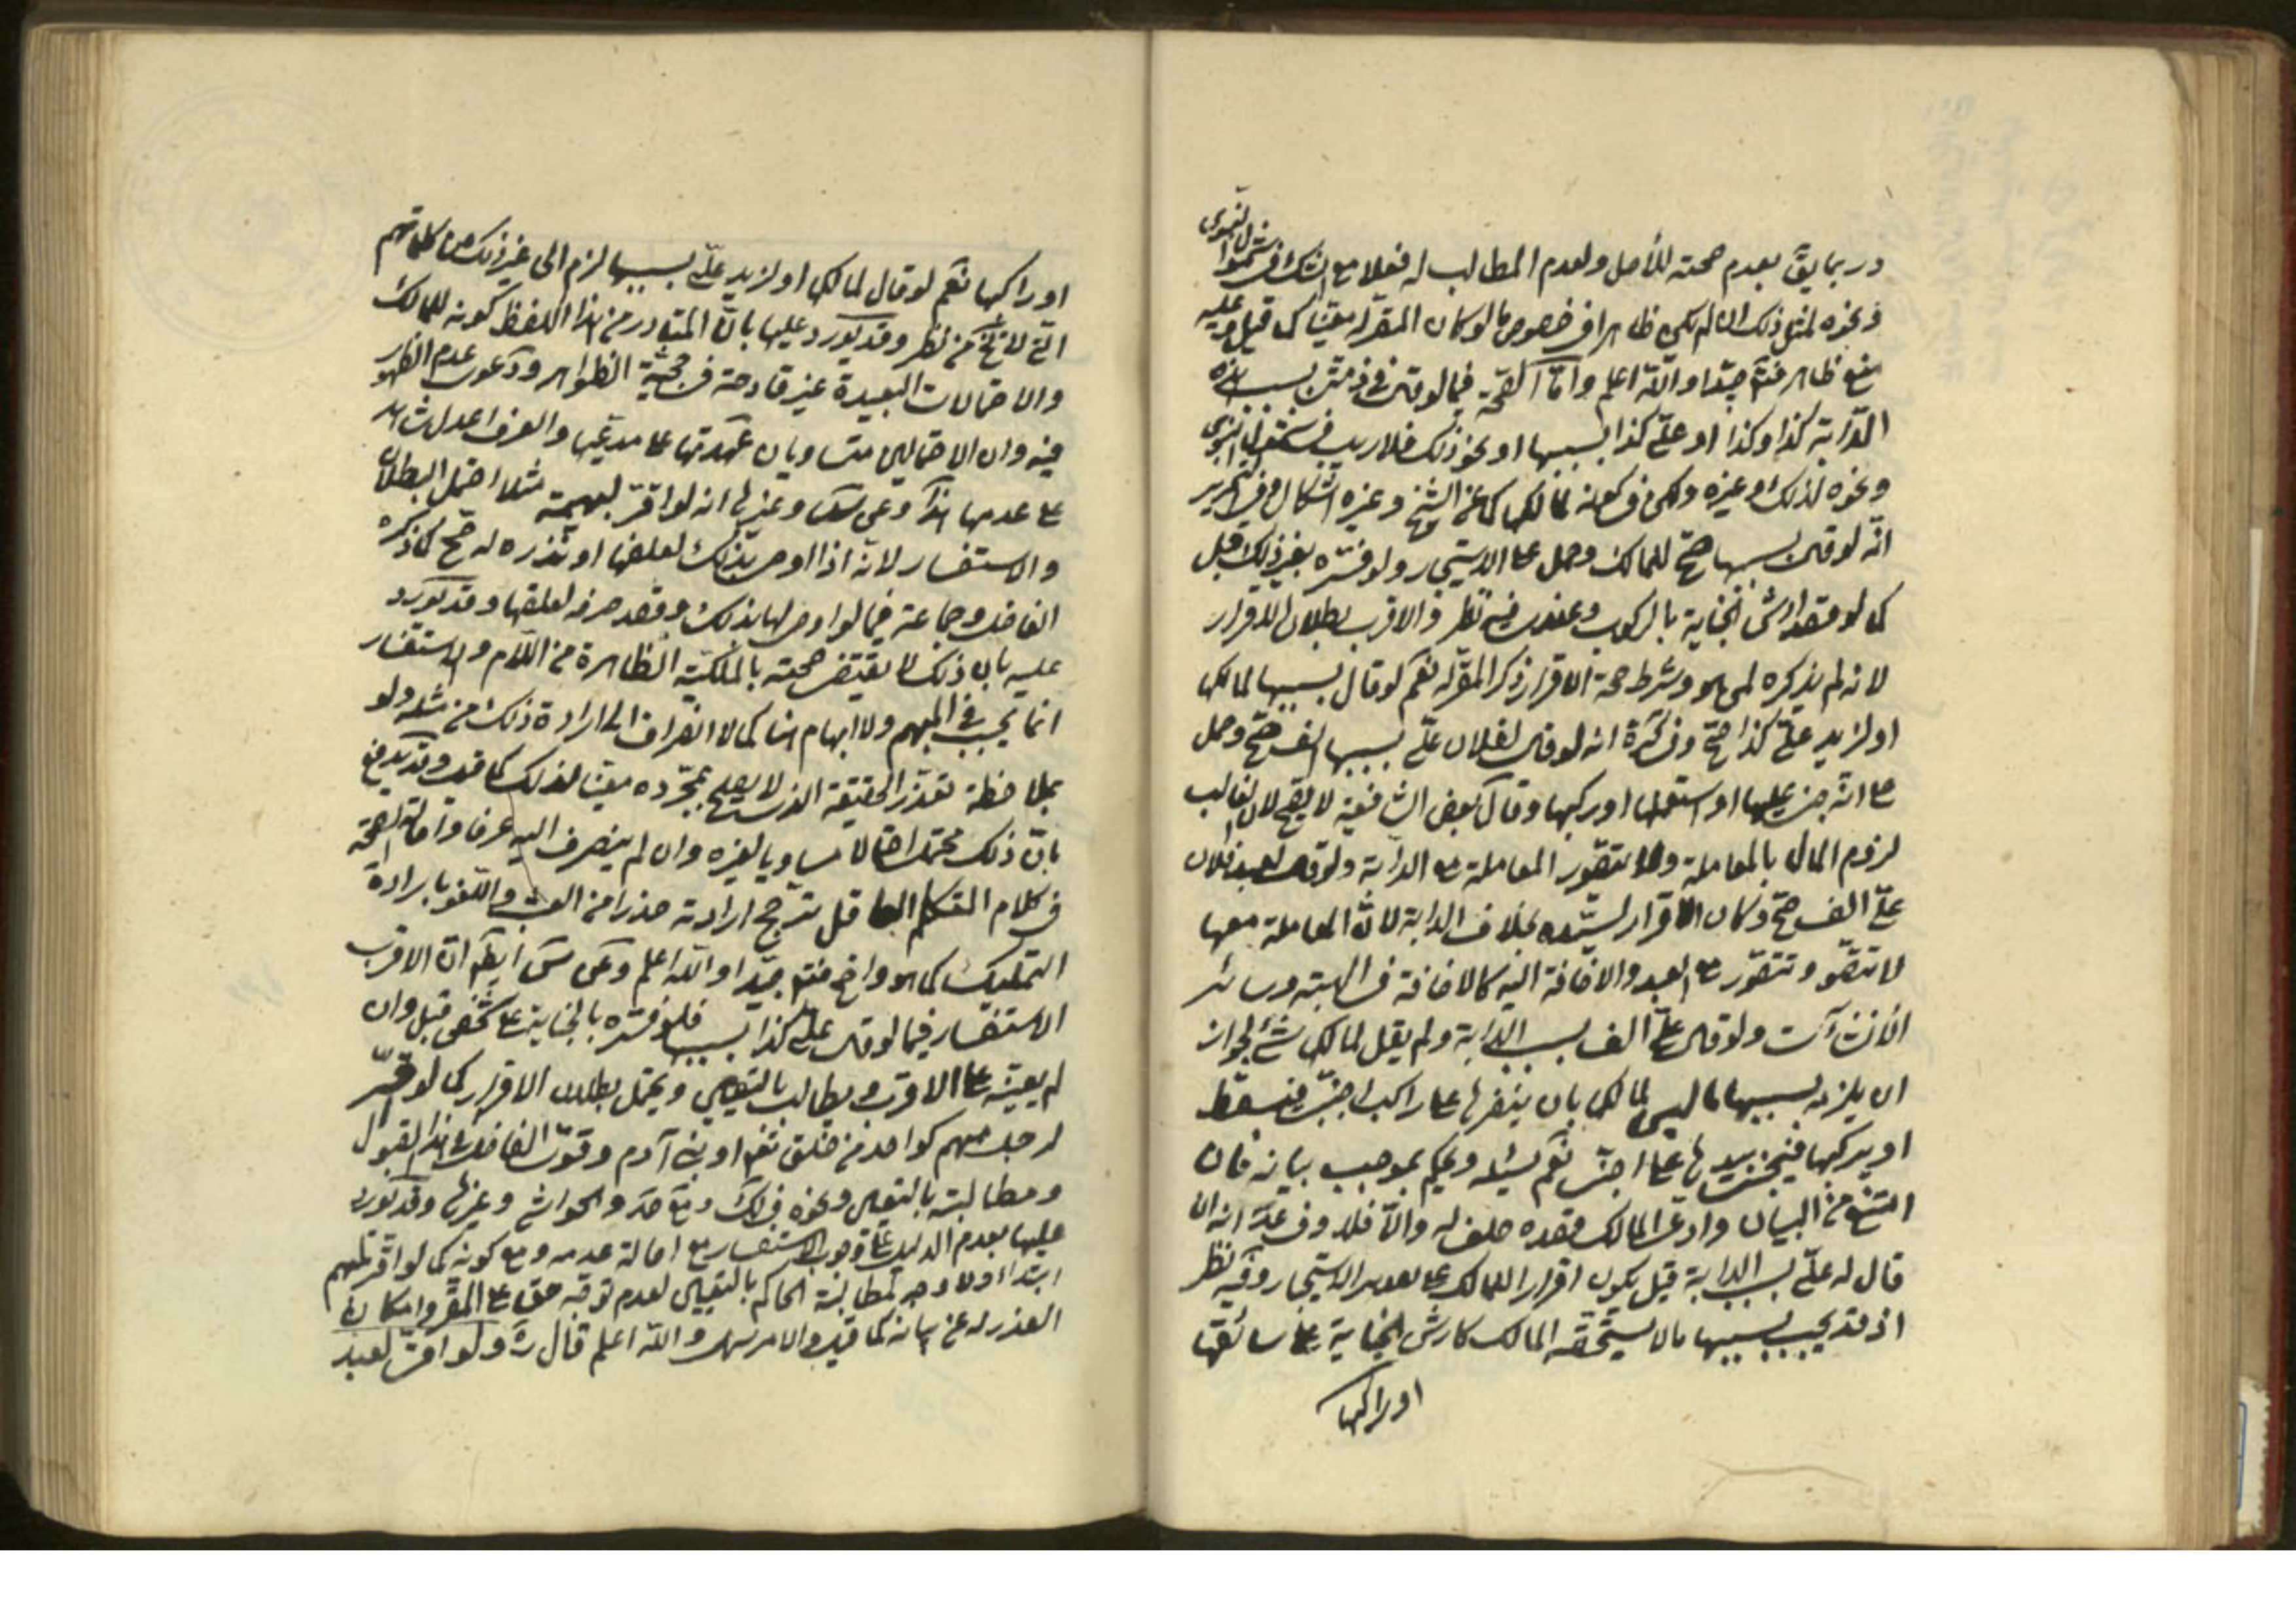 وربما يق بعدم صحته للأصل ولعدم المطالب له فعلا مع الشك في شمول النبوي
ونحوه لمثل ذلك ان لم يكن ظاهرا في خصوص ما لو كان المقر له معينا كما قيل وعليه
منع ظاهر فتم جيدا والله اعلم وأما الصحة فيما لو قال في ذمتي بسبب هذه
الدابة كذا وكذا او علي كذا بسببها او نحو ذلك فلا ريب في النبوي
ونحوه لذلك وغيره ولكن في كونه لمالكها كما عن الشيخ وغيره اشكال وفي التحرير
انه لو قال بسببها صح للمالك وحمل على الاستيجار ولو فسره بغير ذلك قبل
كما لو قصد ارش الجناية بالركوب وعندي فيه نظر والاقرب بطلان الاقرار
لانه لم يذكره لمن هو وشرط صحة الاقرار ذكر المقر له نعم لو قال بسببها لمالكها
او لزيد علي كذا صح وفي كرة انه لو قال لفلان علي بسببها الف صح وحمل
على انه جنى عليها او استعملها او ركبها وقال بعض الشافعية لا يصح لان الغالب
لزوم المال بالمعاملة ولا تتصور المعاملة مع الدابة ولو قال لعبد فلان
علي الف صح وكان الاقرار لسيده بخلاف الدابة لان المعاملة معها
لا تتصور وتتصور مع العبد والاضافة اليه كالاضافة في الهبة وسائر
الانشاآت ولو قال علي الف بسبب الدابة ولم يقل لمالكها شئ لجواز
ان يلزمه بسببها ما ليس لمالكها بان ينفرها على راكب اجنبي فيسقط
او يركبها فيجني بيديها على اجنبي نعم يسئل ويحكم بموجب بيانه فان
امتنع من البيان وادعى المالك قصده حلف له والا فلا وفي عد انه ان
قال له علي بسبب الدابة قيل يكون اقرارا للمالك على الاستيجار وفيه نظر
اذ قد يجب بسببها ما لا يستحقه المالك كارش الجناية على سائقها
او راكبها
او راكبها نعم لو قال لمالكها او لزيد علي بسببها لزم الى غير ذلك من كلماتهم
التي لا تخ من نظر وقد يورد عليها بان المتبادر من هذا اللفظ كونه للمالك
والاحتمالات البعيدة غير قادحة في حجية الظواهر ودعوى عدم الظهور
فيه وان الاحتمالين متساويان عهدتها على مدعيها والعرف اعدل شاهد
على عدمها هذا وعن وغيرها انه لو اقر لبهيمة مثلا احتمل البطلان
والاستفسار لانه اذا اوصى بذلك لعلفها او نذره له صح كما ذكره
الفاضل وجماعة فيما لو اوصى لها بذلك وقصد صرفه لعلفها وقد يورد
عليه بان ذلك لا يقتضي صحته بالملكية الظاهرة من اللام والاستفسار
انما يجب في المبهم ولا ابهام هنا كما لا انصراف الى ارادة ذلك من مثله ولو
بملاحظة تعذر الحقيقة الذي لا يصلح بمجرده معينا لذلك كما قيل وقد يدفع
بان ذلك محتمل احتمالا مساويا لغيره وان لم ينصرف اليه عرفا واصالة الصحة
في كلام المتكلم العاقل ترجح ارادته حذرا من العبث واللغو بارادة
التمليك كما هو واضح فتم جيدا والله اعلم وعن ايضا ان الاقرب
الاستفسار فيما لو قال علي كذا بسببها فلو فسره بالجناية على شخص قبل وان
لم يعينه على الاقرب ويطالب بالتعيين ويحتمل بطلان الاقرار كما لو اقر
لرجل مبهم كواحد من خلق الله او بني آدم وقوى الفاضل في هذا القبول
ومطالبته بالتعيين ونحوه في لك ومع صد والحواشي وغيرها وقد يورد
عليها بعدم الدليل على وجوب الاستفسار مع اصالة عدمه ومع كونه كما لو اقر لمبهم
ابتداء ولا وجه لمطالبة الحاكم بالتعيين لعدم توجه حق على المقر وامكان
العذر له عن بيانه كما قيل والامر سهل والله اعلم قال ره ولو اقر لعبد